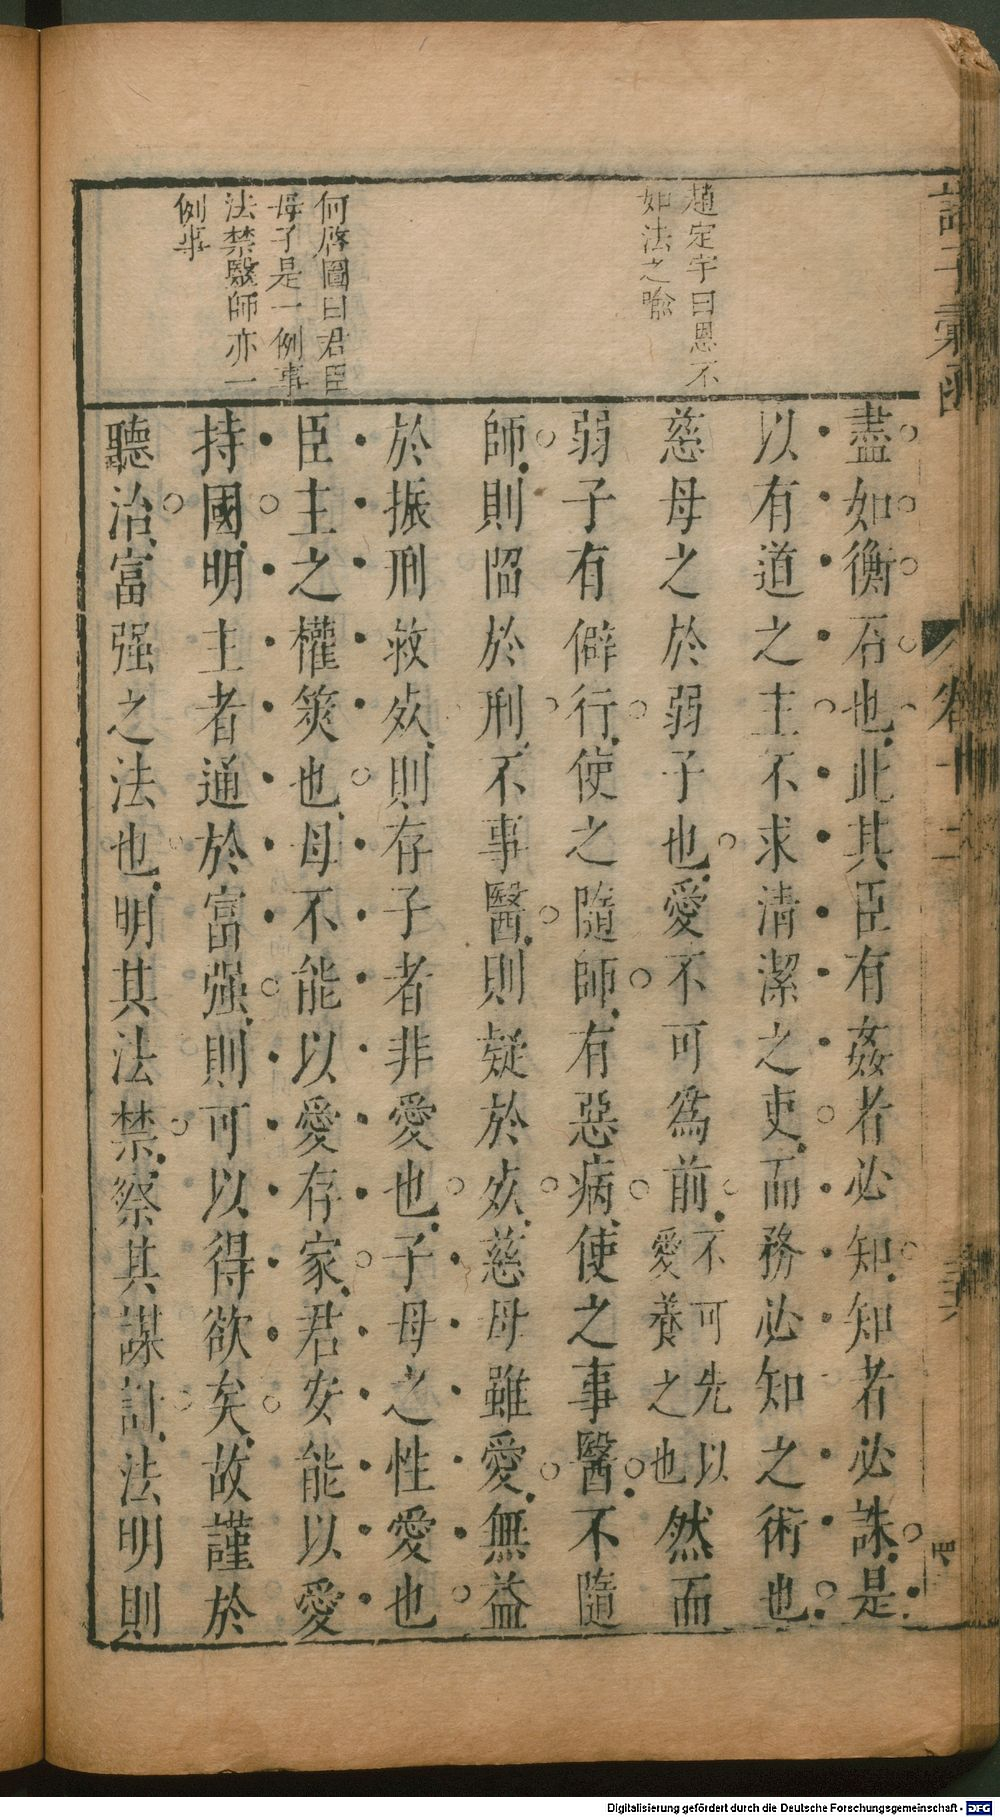 諸子彙函
卷十二
趙定宇曰恩不
如法之喻
何啓圖曰君臣
母子是一例事
法禁醫師亦一
例事
盡如衡石也此其臣有姦者必知知者必誅是
以有道之主不求清潔之吏而務必知之術也
慈母之於弱子也愛不可爲前不可先以愛養之也然而
弱子有僻行使之隨師有惡病使之事醫不隨
師則陷於刑不事醫則疑於㱙慈母雖愛無益
於振刑救㱙則存子者非愛也子母之性愛也
臣主之權筴也母不能以愛存家君安能以愛
持國明主者通於富强則可以得欲矣故謹於
聽治富强之法也明其法禁察其謀計法明則
Digitalisierung gefördert durch die Deutsche Forschungsgemeinschaft - DFG